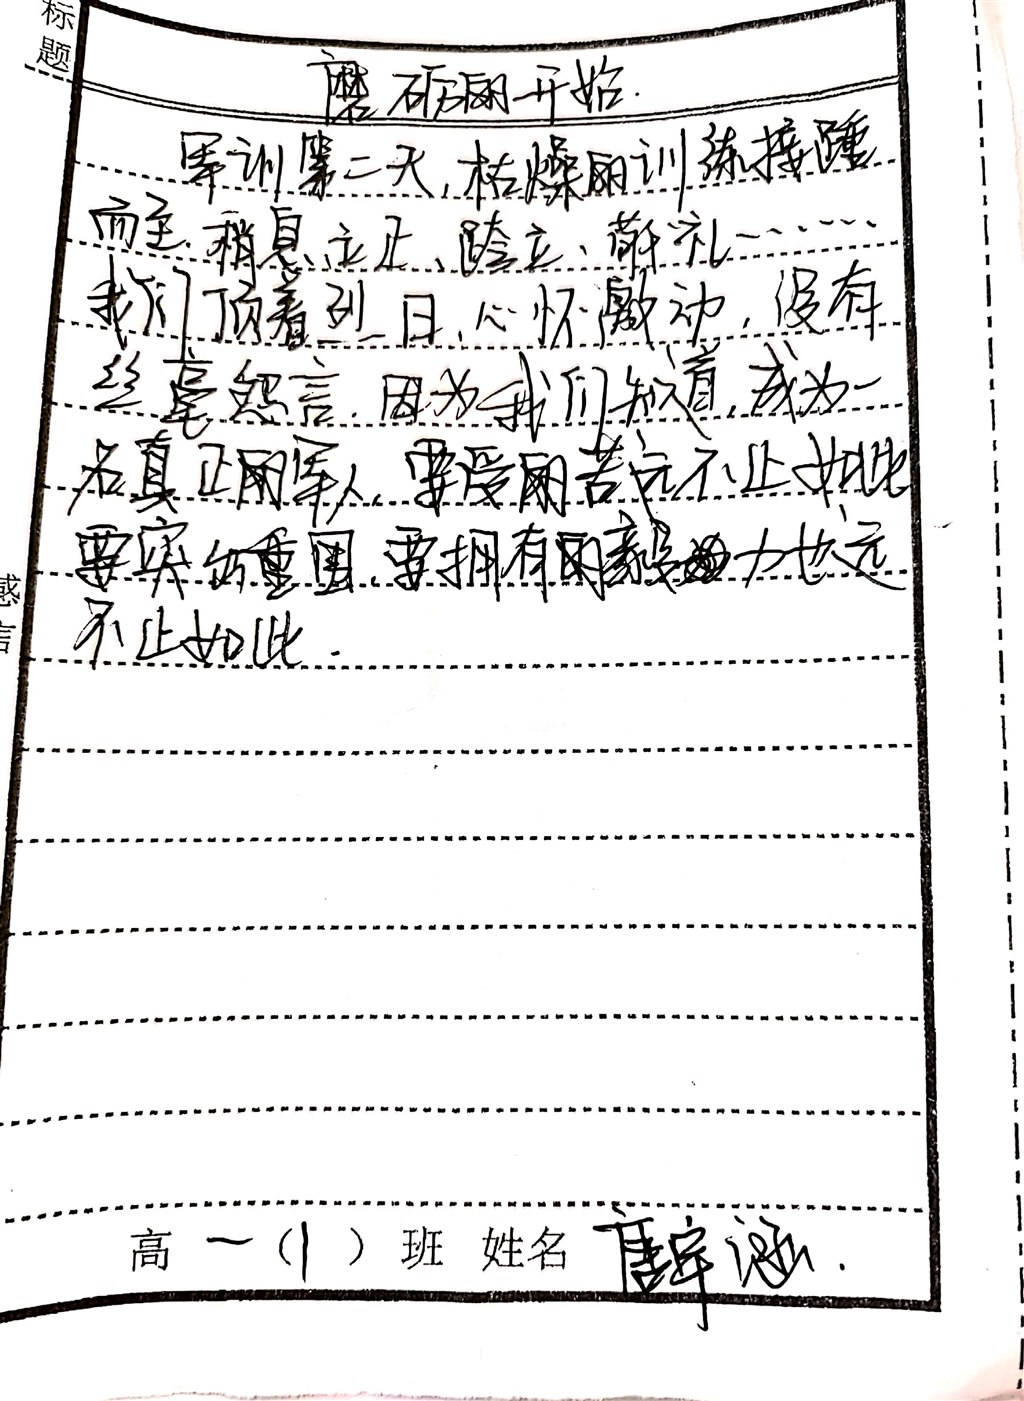 标题
磨砺的开始.
军训第二天,枯燥的训练接踵
而至.稍息、立正、跨立、敬礼……
我们顶着烈日,心怀激动,没有
丝毫怨言.因为我们知道,成为一
名真正的军人,要受的苦远不止如此
要突的重围,要拥有的毅力也远
不止如此.
感言
高一(1)班 姓名 涵.